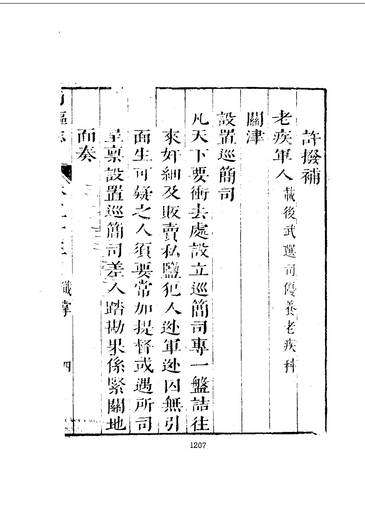 許撥補
老疾軍人載後武選司優養老疾科
關津
設置巡簡司
凡天下要衝去處設立巡簡司專一盤詰往
來奸細及販賣私鹽犯人迯軍迯囚無引
面生可疑之人須要常加提督或遇所司
呈禀設置巡簡司差人踏勘果係緊關地
面奏
職掌
四
1207